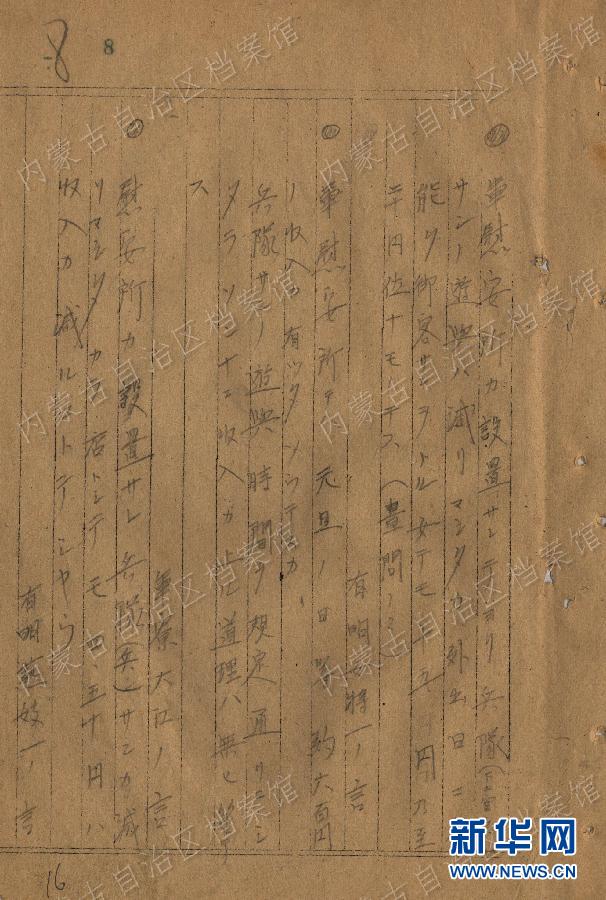 8
8
軍慰安所カ設置サレテヨリ兵隊
サンノ遊興ハ減リマシタカ外出日ニ
能ク御客サンヲトル女テモ十五円乃至
二十円位ナモテス(晝間ノミ)
有明 一ノ言
軍慰安所テ元旦ノ日 約六百円
ノ収入カ有ツタソウテスカ、
兵隊サンノ遊興時間ヲ規定通リニシ
タラソンナニ収入カ上ル道理ハ無
ス
大江ノ言
慰安所カ設置サレ兵隊(兵)サンカ減
リマシタカラ店トシテモ四、五十円ハ
収入カ減ル テシヤウ
有明藝妓一ノ言
16
内蒙古自治区档案馆
新华网
WWW.NEWS.CN